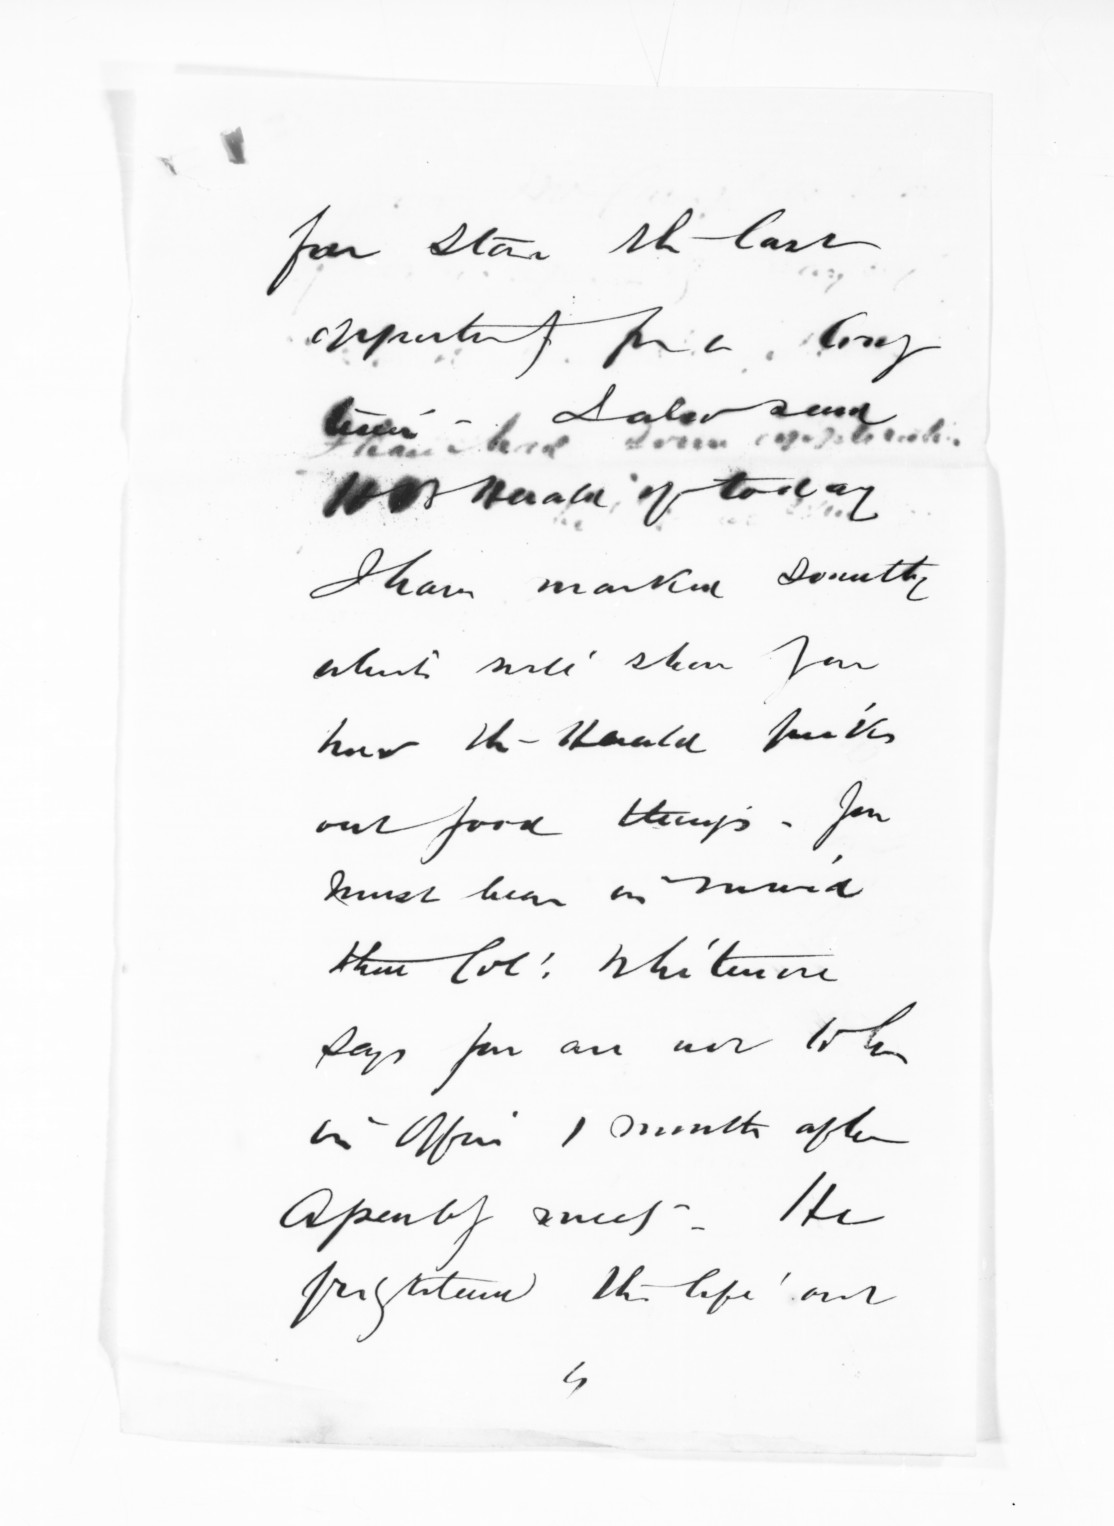 for Store the last
opportunity for a long
time - I also send
Herald of today
I have marked something
which will show you
how the Herald picks
out good things - You
must bear in mind
that Col. Whitmore
says you are not to be
in Office 1 month after
Assembly meets - He
frightened the life out